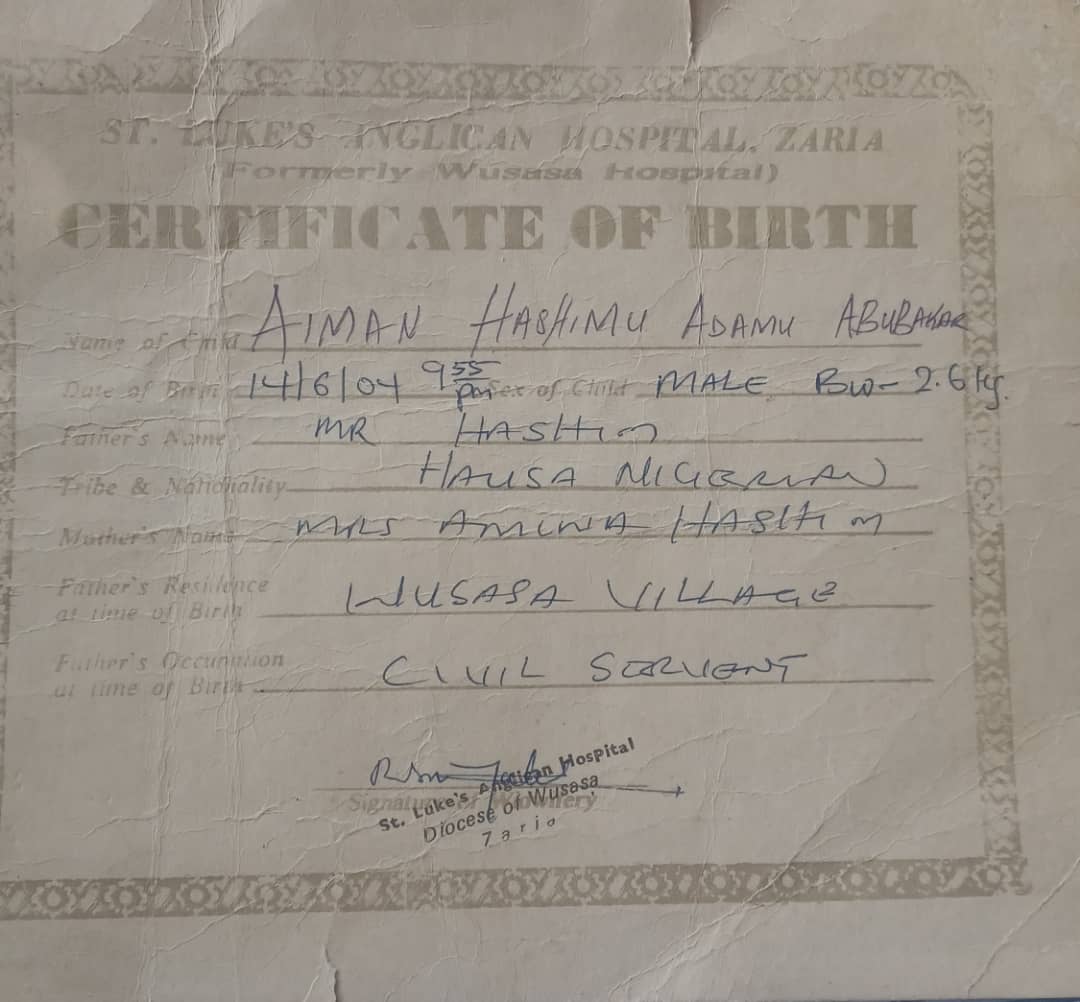 ST. LUKE'S ANGLICAN HOSPITAL, ZARIA
Formerly Wusasa Hospital)
CERTIFICATE OF BIRTH
Name of Child AIMAN HASHIMU ADAMU ABUBAKAR
Date of Birth 14/6/04 9 55 pm Sex of Child MALE BW- 2.6 kg.
Father's Name MR HASHIM
Tribe & Nationality HAUSA NIGERIAN
Mother's Name MRS AMINA HASHIM
Father's Residence
at time of Birth WUSASA VILLAGE
Father's Occupation
at time of Birth CIVIL SERVENT
Signature of Midwifery
St. Luke's Anglican Hospital
Diocese of Wusasa
Zaria